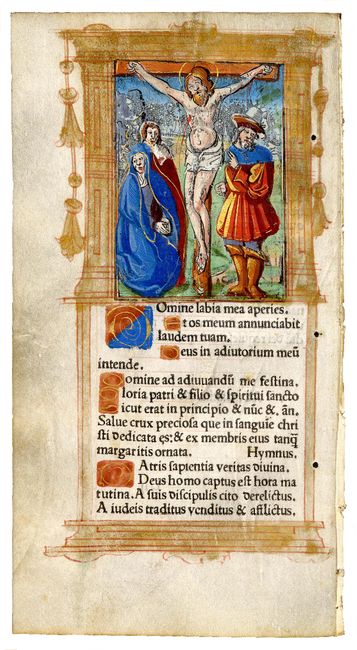 Omine labia mea aperies.
Et os meum annunciabit
laudem tuam.
Deus in adiutorium meū
intende.
Domine ad adiuuandū me festina.
Gloria patri & filio & spiritui sancto
Sicut erat in principio & nūc &. añ.
Salue crux preciosa que in sanguīe chri
sti dedicata es: & ex membris eius tanq̄
margaritis ornata. Hymnus.
PAtris sapientia veritas diuina.
Deus homo captus est hora ma
tutina. A suis discipulis cito derelictus.
A iudeis traditus venditus & afflictus.